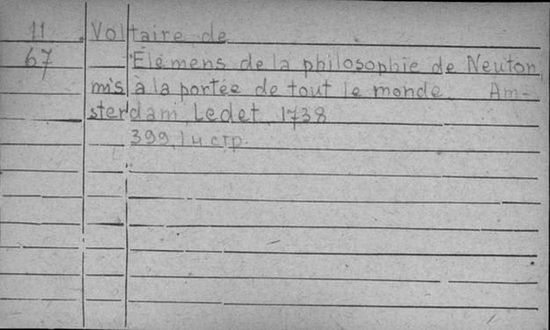 11 Voltaire de
67 Élémens de la philosophie de Neuton,
mis à la portée de tout le monde. Am-
sterdam, Ledet, 1738
399, стр.